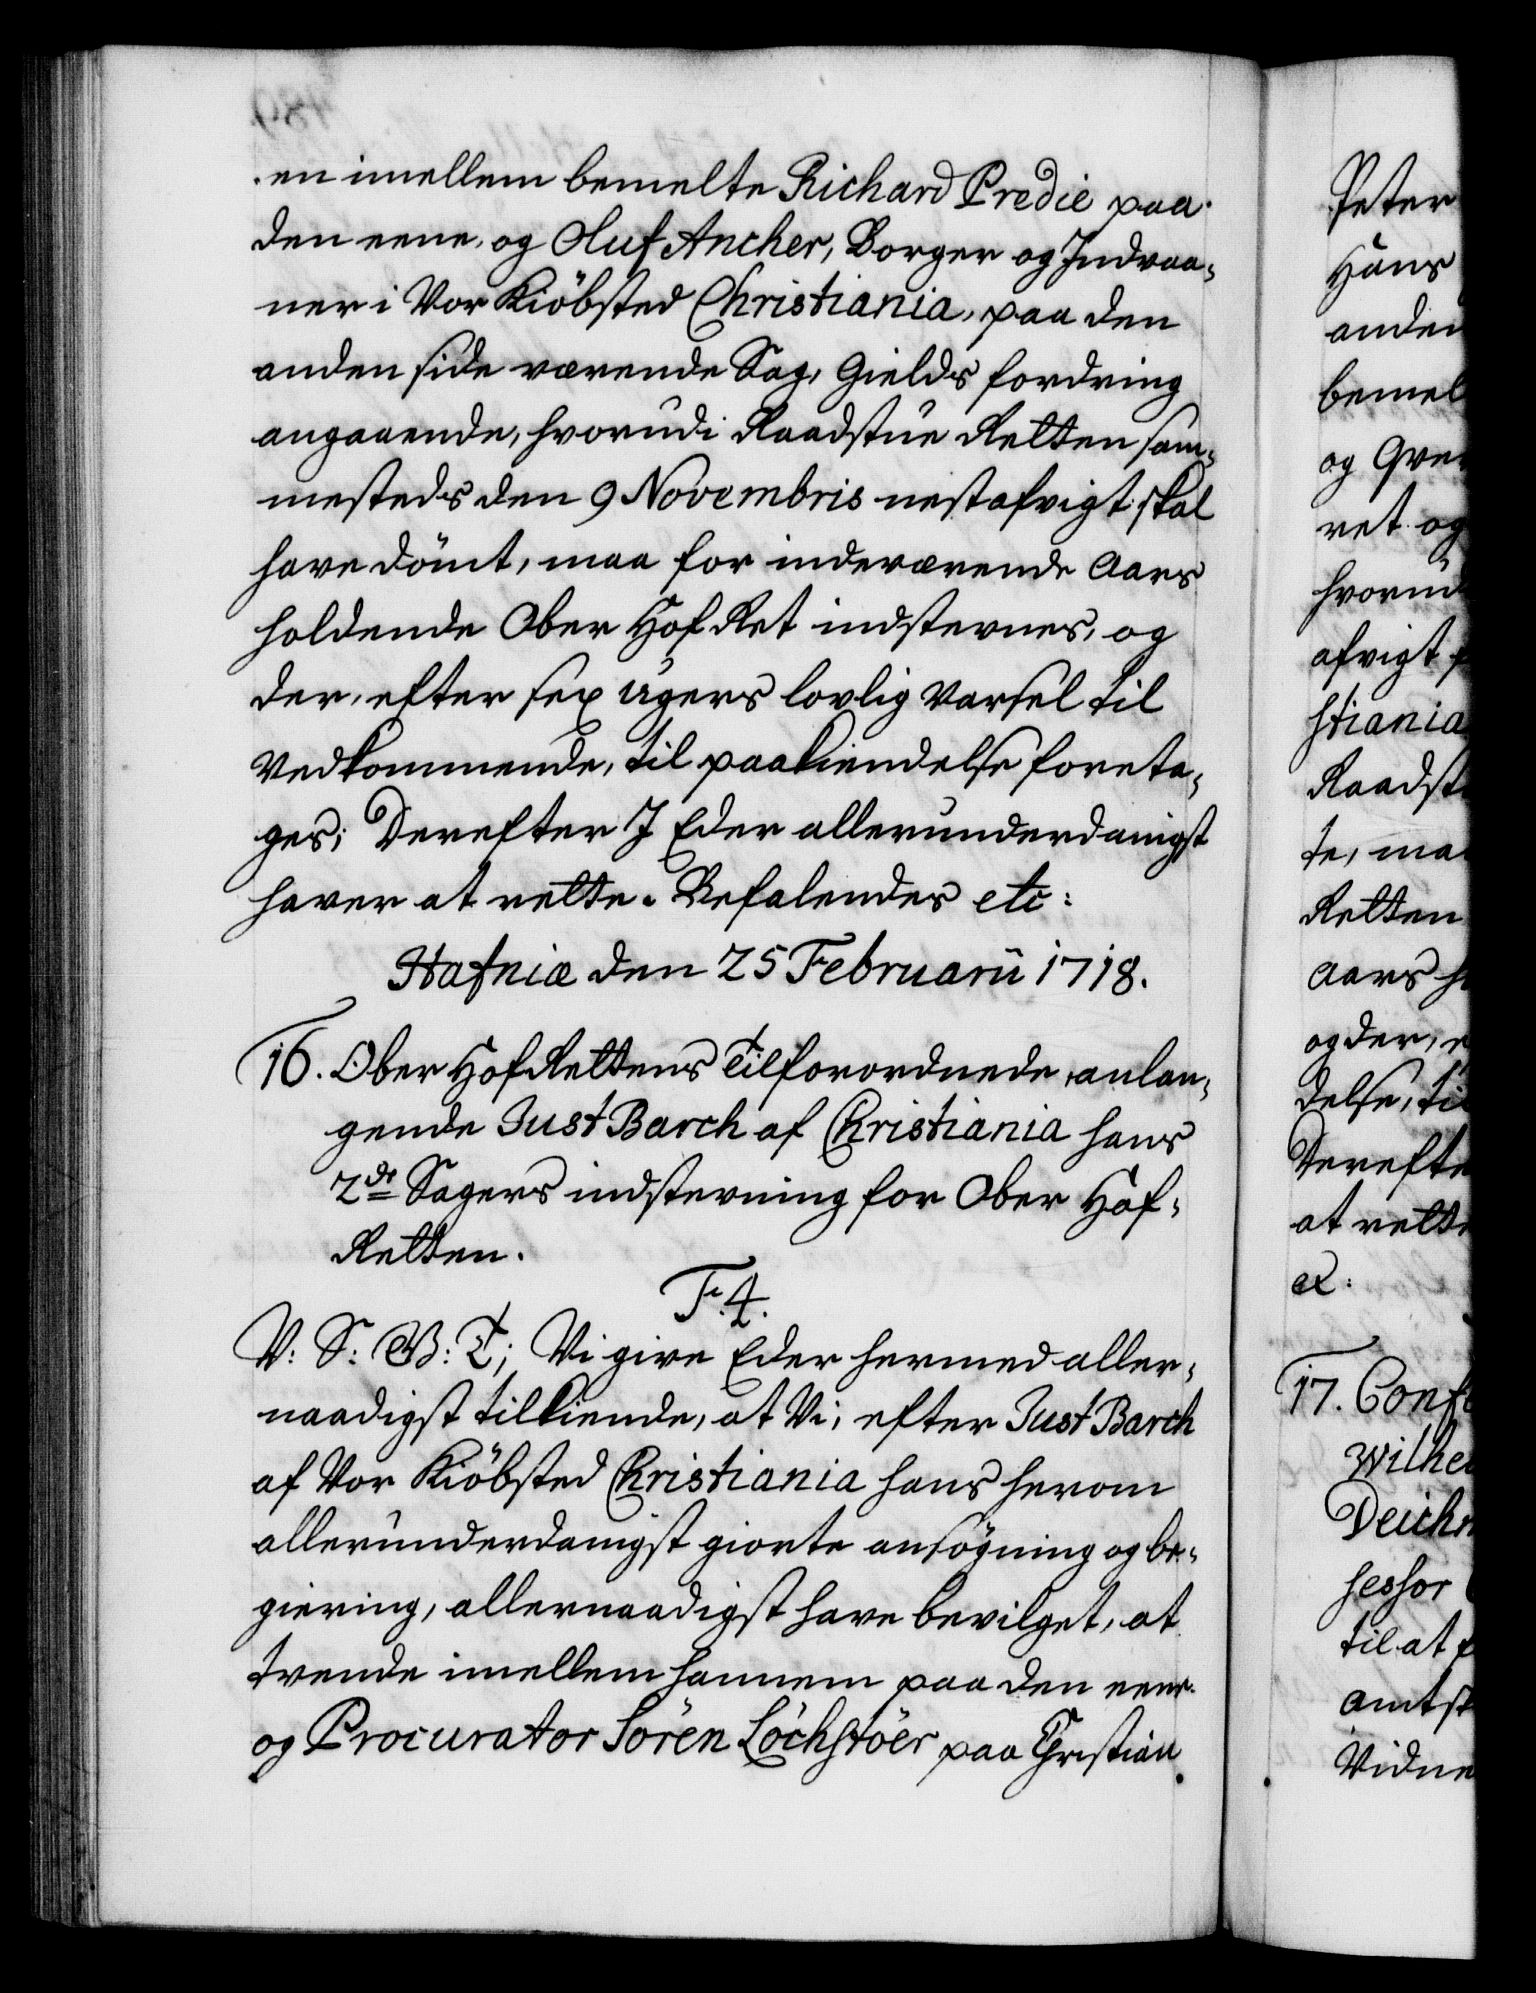 en imellem bemelte Richard Predie paa
den eene, og Oluf Ancher, Borger og Indvaa-
ner i Vor Kiöbsted Christiania, paa den
anden side værende Sag, Gields fordring
angaaende, hvorudi Raadstue Retten sam-
mesteds den 9 Novembris nestafvigt skal
have dömt, maa for indeværende Aars
holdende Ober Hof Ret indstevnes, og
der, efter sex ugers lovlig Varsel til
Vedkommende, til paakiendelse foreta-
ges; Derefter I Eder allerunderdanigst
haver at rette. Befalendes etc:
Hafniæ den 25 Februarii 1718.
16. Ober Hof Rettens Tilforordnede, anlan-
gende Just Barch af Christiania hans
2de Sagers indstevning for Ober Hof-
Retten.
F. 4.
V: S: G: T; Vi give Eder hermed aller-
naadigst tilkiende, at Vi, efter Just Barch
af Vor Kiöbsted Christiania hans herom
allerunderdanigst giorte ansögning og be-
giering, allernaadigst have bevilget, at
tvende imellem hannem paa den eene
og Procurator Sören Löchstöer paa Christian
Peter
Hans
anden
bemel
og
ret og
hvorud
afvigt
stiania
Raadst
te, maa
Retten
Aars
og der,
delse, til
Derefte
at rette
17. Conf
Wilhel
Deichm
sessor
til at
Amts
Vidne